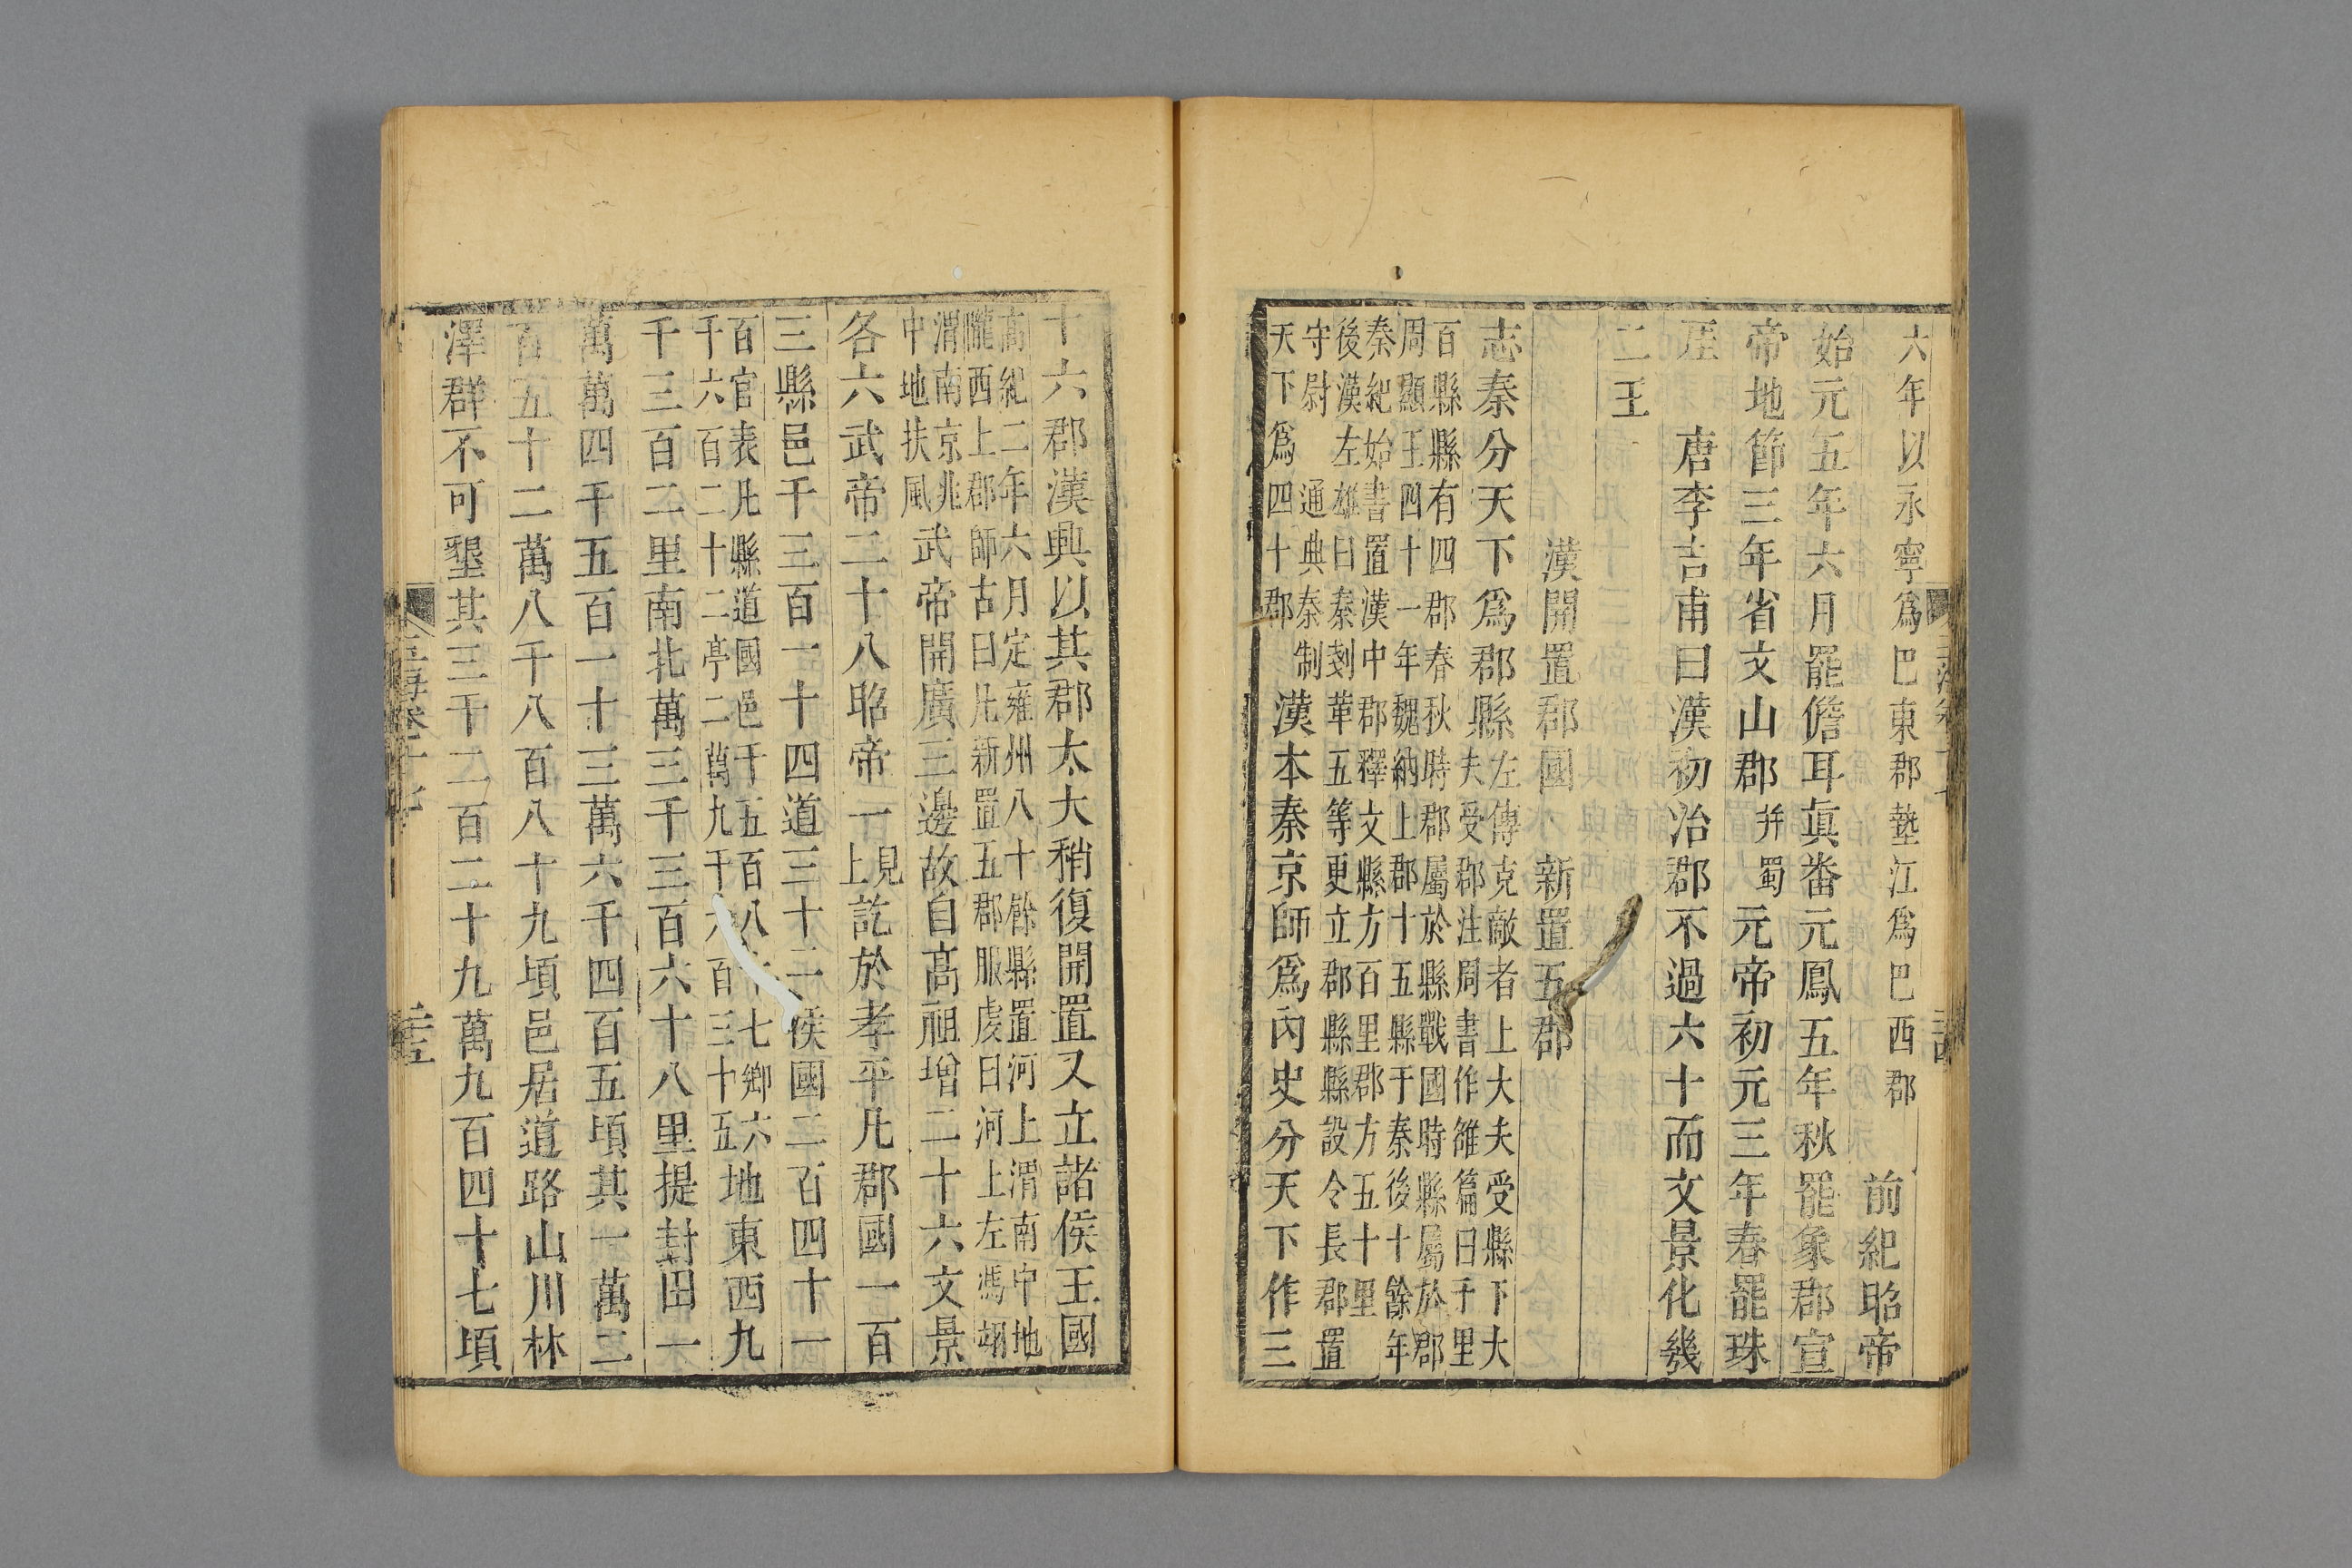 六年以永寧爲巴東郡墊江爲巴西郡　前紀昭帝
始元五年六月罷儋耳眞番元鳳五年秋罷象郡宣
帝地節三年省文山郡幷蜀元帝初元三年春罷珠
厓　唐李吉甫曰漢初治郡不過六十而文景化幾
二王
漢開置郡國　新置五郡
志秦分天下爲郡縣左傳克敵者上大夫受縣下大
夫受郡注周書作雒篇曰千里
百縣縣有四郡春秋時郡屬於縣戰國時縣屬於郡
周顯王四十一年魏納上郡十五縣于秦後十餘年
秦紀始書置漢中郡釋文縣方百里郡方五十里
後漢左雄曰秦剗革五等更立郡縣縣設令長郡置
守尉　通典秦制
天下爲四十郡漢本秦京師爲內史分天下作三
十六郡漢興以其郡太大稍復開置又立諸侯王國
高紀二年六月定雍州八十餘縣置河上渭南中地
隴西上郡師古曰凡新置五郡服虔曰河上左馮翊
渭南京兆
中地扶風武帝開廣三邊故自高祖增二十六文景
各六武帝二十八昭帝一見上訖於孝平凡郡國一百
三縣邑千三百一十四道三十二侯國二百四十一
百官表凡縣道國邑千五百八十七鄉六
千六百二十二亭二萬九千六百三十五地東西九
千三百二里南北萬三千三百六十八里提封田一
萬萬四千五百一十三萬六千四百五頃其一萬二
百五十二萬八千八百八十九頃邑居道路山川林
澤群不可墾其三千二百二十九萬九百四十七頃